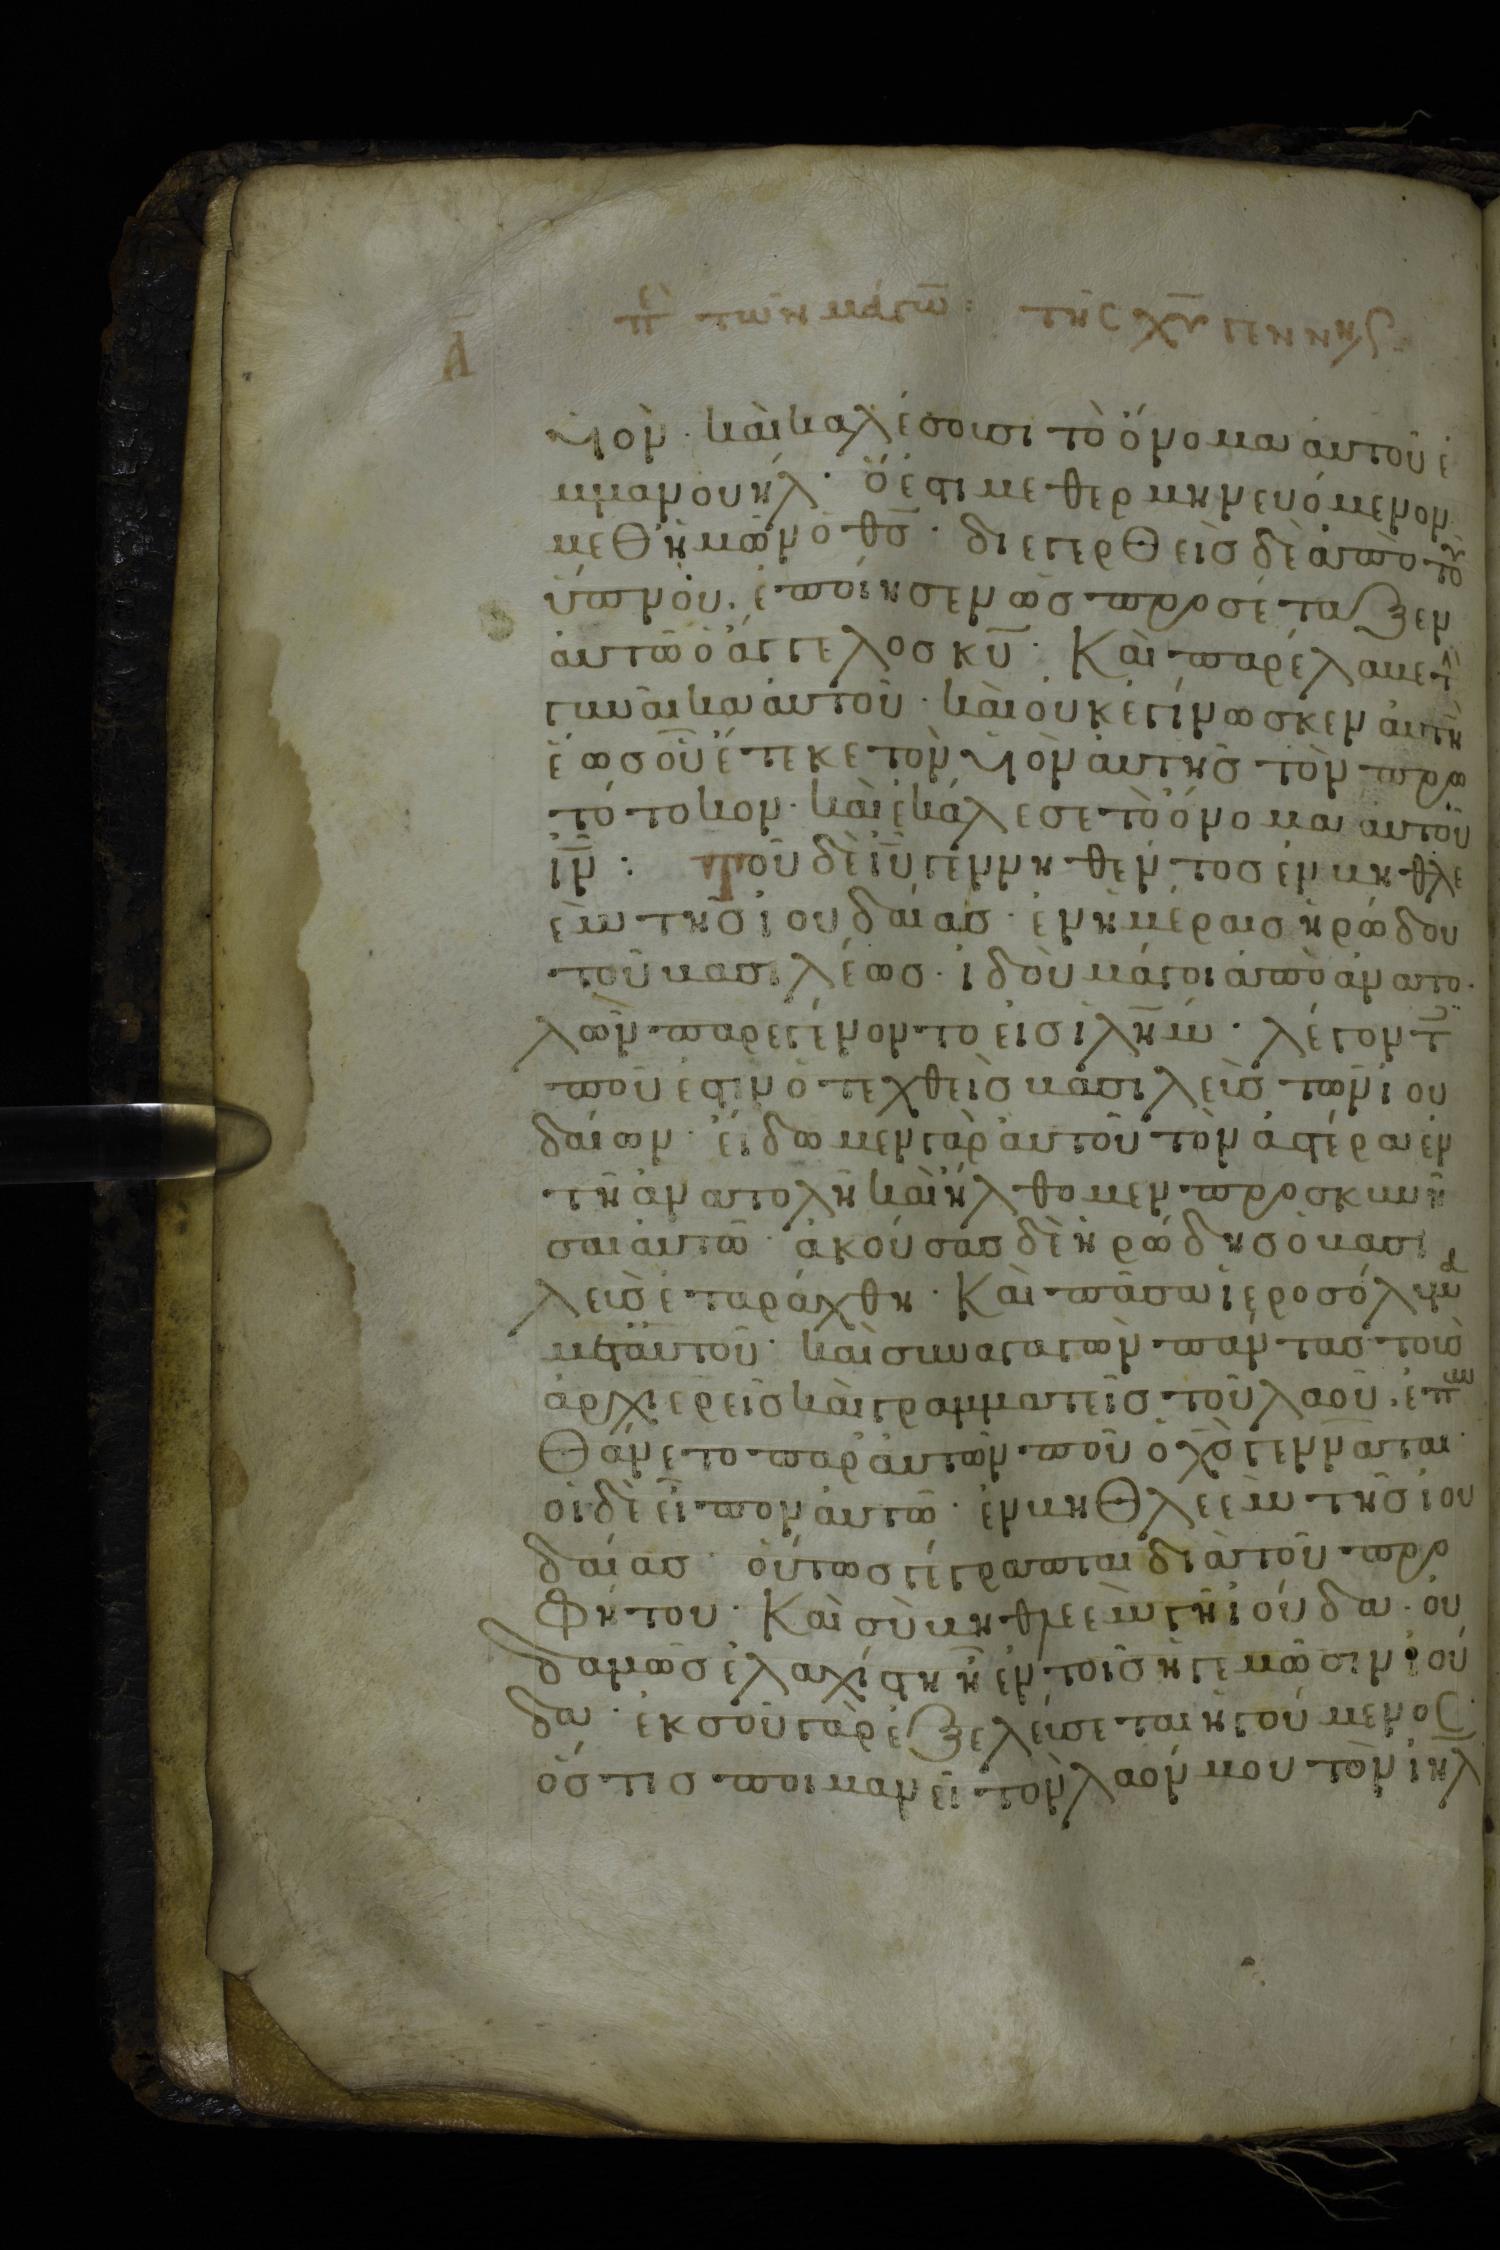 πε τῶν μάγω: τῆς χυ γεννης
Α
υἱὸν. καὶ καλέσουσι τὸ ὄνομα αὐτοῦ ἐ
μμανουήλ. ὅ ἐστι μεθερμηνευόμενον
μεθ ἡμῶν ὁ θς. διεγερθεὶς δὲ ἀπὸ τοῦ
ὕπνου. ἐποίησεν ὡς προσέταξεν
αὐτῶ ὁ ἄγγελος κυ. Καὶ παρέλαβε τ
γυναῖκα αὐτοῦ. καὶ οὐκ ἐγίνωσκεν αὐτὴ
ἕως οὗ ἔτεκε τὸν υἱὸν αὐτῆς τὸν πρω
τότοκον. καὶ ἐκάλεσε τὸ ὄνομα αὐτοῦ
ιν: Τοῦ δὲ ιυ γεννηθέντος ἐν βηθλε
ὲμ τῆς ἰουδαίας. ἐν ἡμέραις ἡρώδου
τοῦ βασιλέως. ἰδοὺ μάγοι ἀπὸ ἀνατο
λῶν παρεγένοντο εἰς ιλημ. λέγοντ
ποῦ ἐστιν ὁ τεχθεὶς βασιλεὺς τῶν ἰου
δαίων. εἴδωμεν γὰρ αὐτοῦ τὸν ἀστέρα ἐν
τῆ ἀνατολῆ καὶ ἤλθομεν προσκυνῆ
σαι αὐτῶ. ἀκούσας δὲ ἡρώδης ὁ βασι
λεὺς ἐταράχθη. Καὶ πᾶσα ἱεροσόλυμ
μετ αὐτοῦ. καὶ συναγαγὼν πάντας τοὺς
ἀρχιερεῖς καὶ γραμματεῖς τοῦ λαοῦ. ἐπυν
θάνετο παρ αὐτῶν ποῦ ὁ χς γεννᾶται.
οἱ δὲ εἶπον αὐτῶ. ἐν βηθλεὲμ τῆς ἰου
δαίας. οὕτως γέγραπται διὰ τοῦ προ
φήτου. Καὶ σὺ βηθλεὲμ γῆ ἰούδα. οὐ
δαμῶς ἐλαχίστη εἶ ἐν τοῖς ἡγεμόσιν ἰού
δα. ἐκ σοῦ γὰρ ἐξελεύσεται ἡγούμενος
ὅστις ποιμανεῖ τὸν λαόν μου τὸν ιηλ